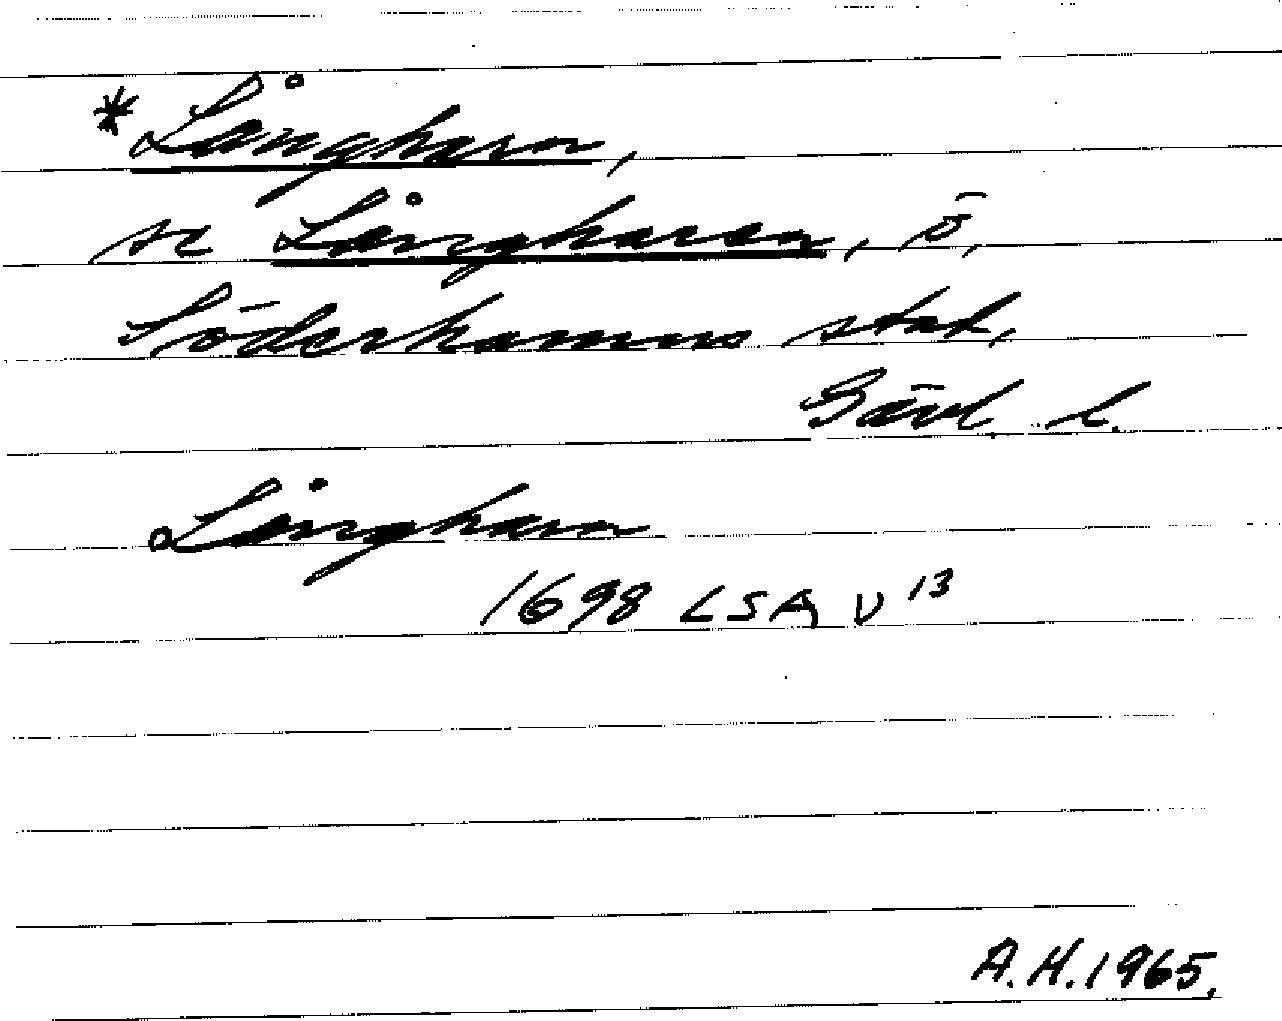 *Långharn,
se Långharen, ö,
Söderhamns stad,
Gävl. l.
Långharn
1698 LSA U 13
A.H. 1965.